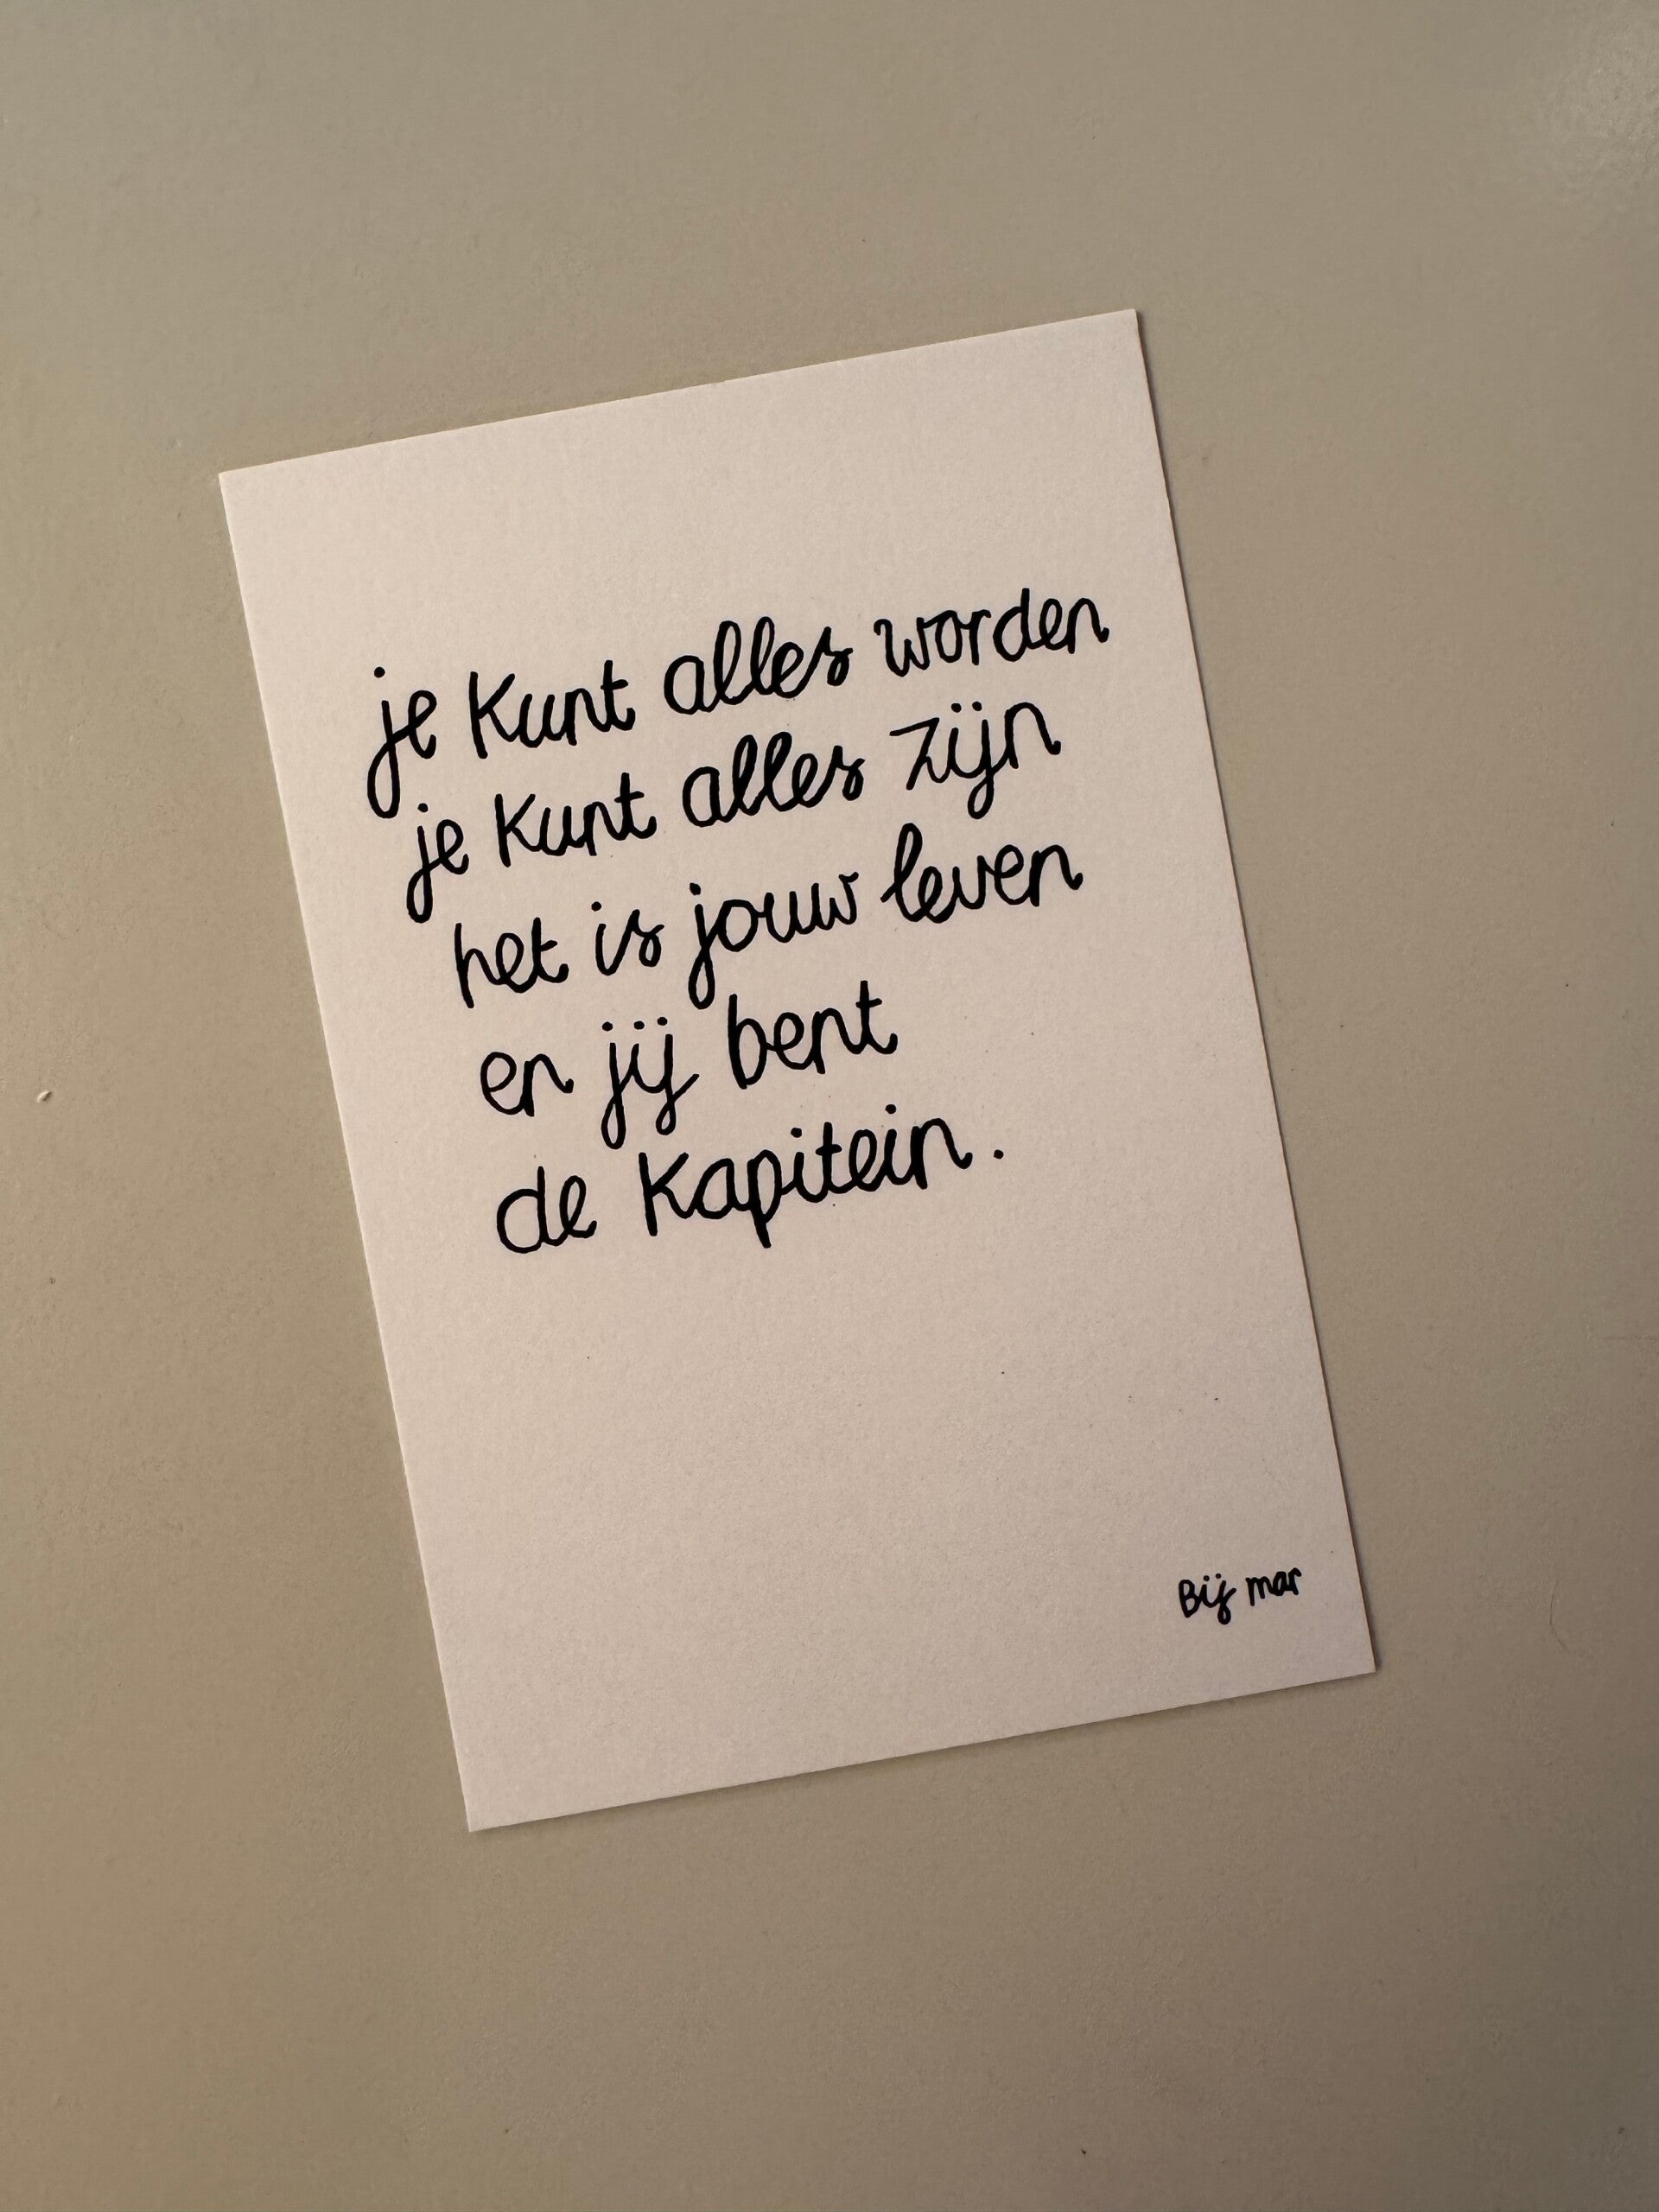 je kunt alles worden
je kunt alles zijn
het is jouw leven
en jij bent
de kapitein.
Bij mar